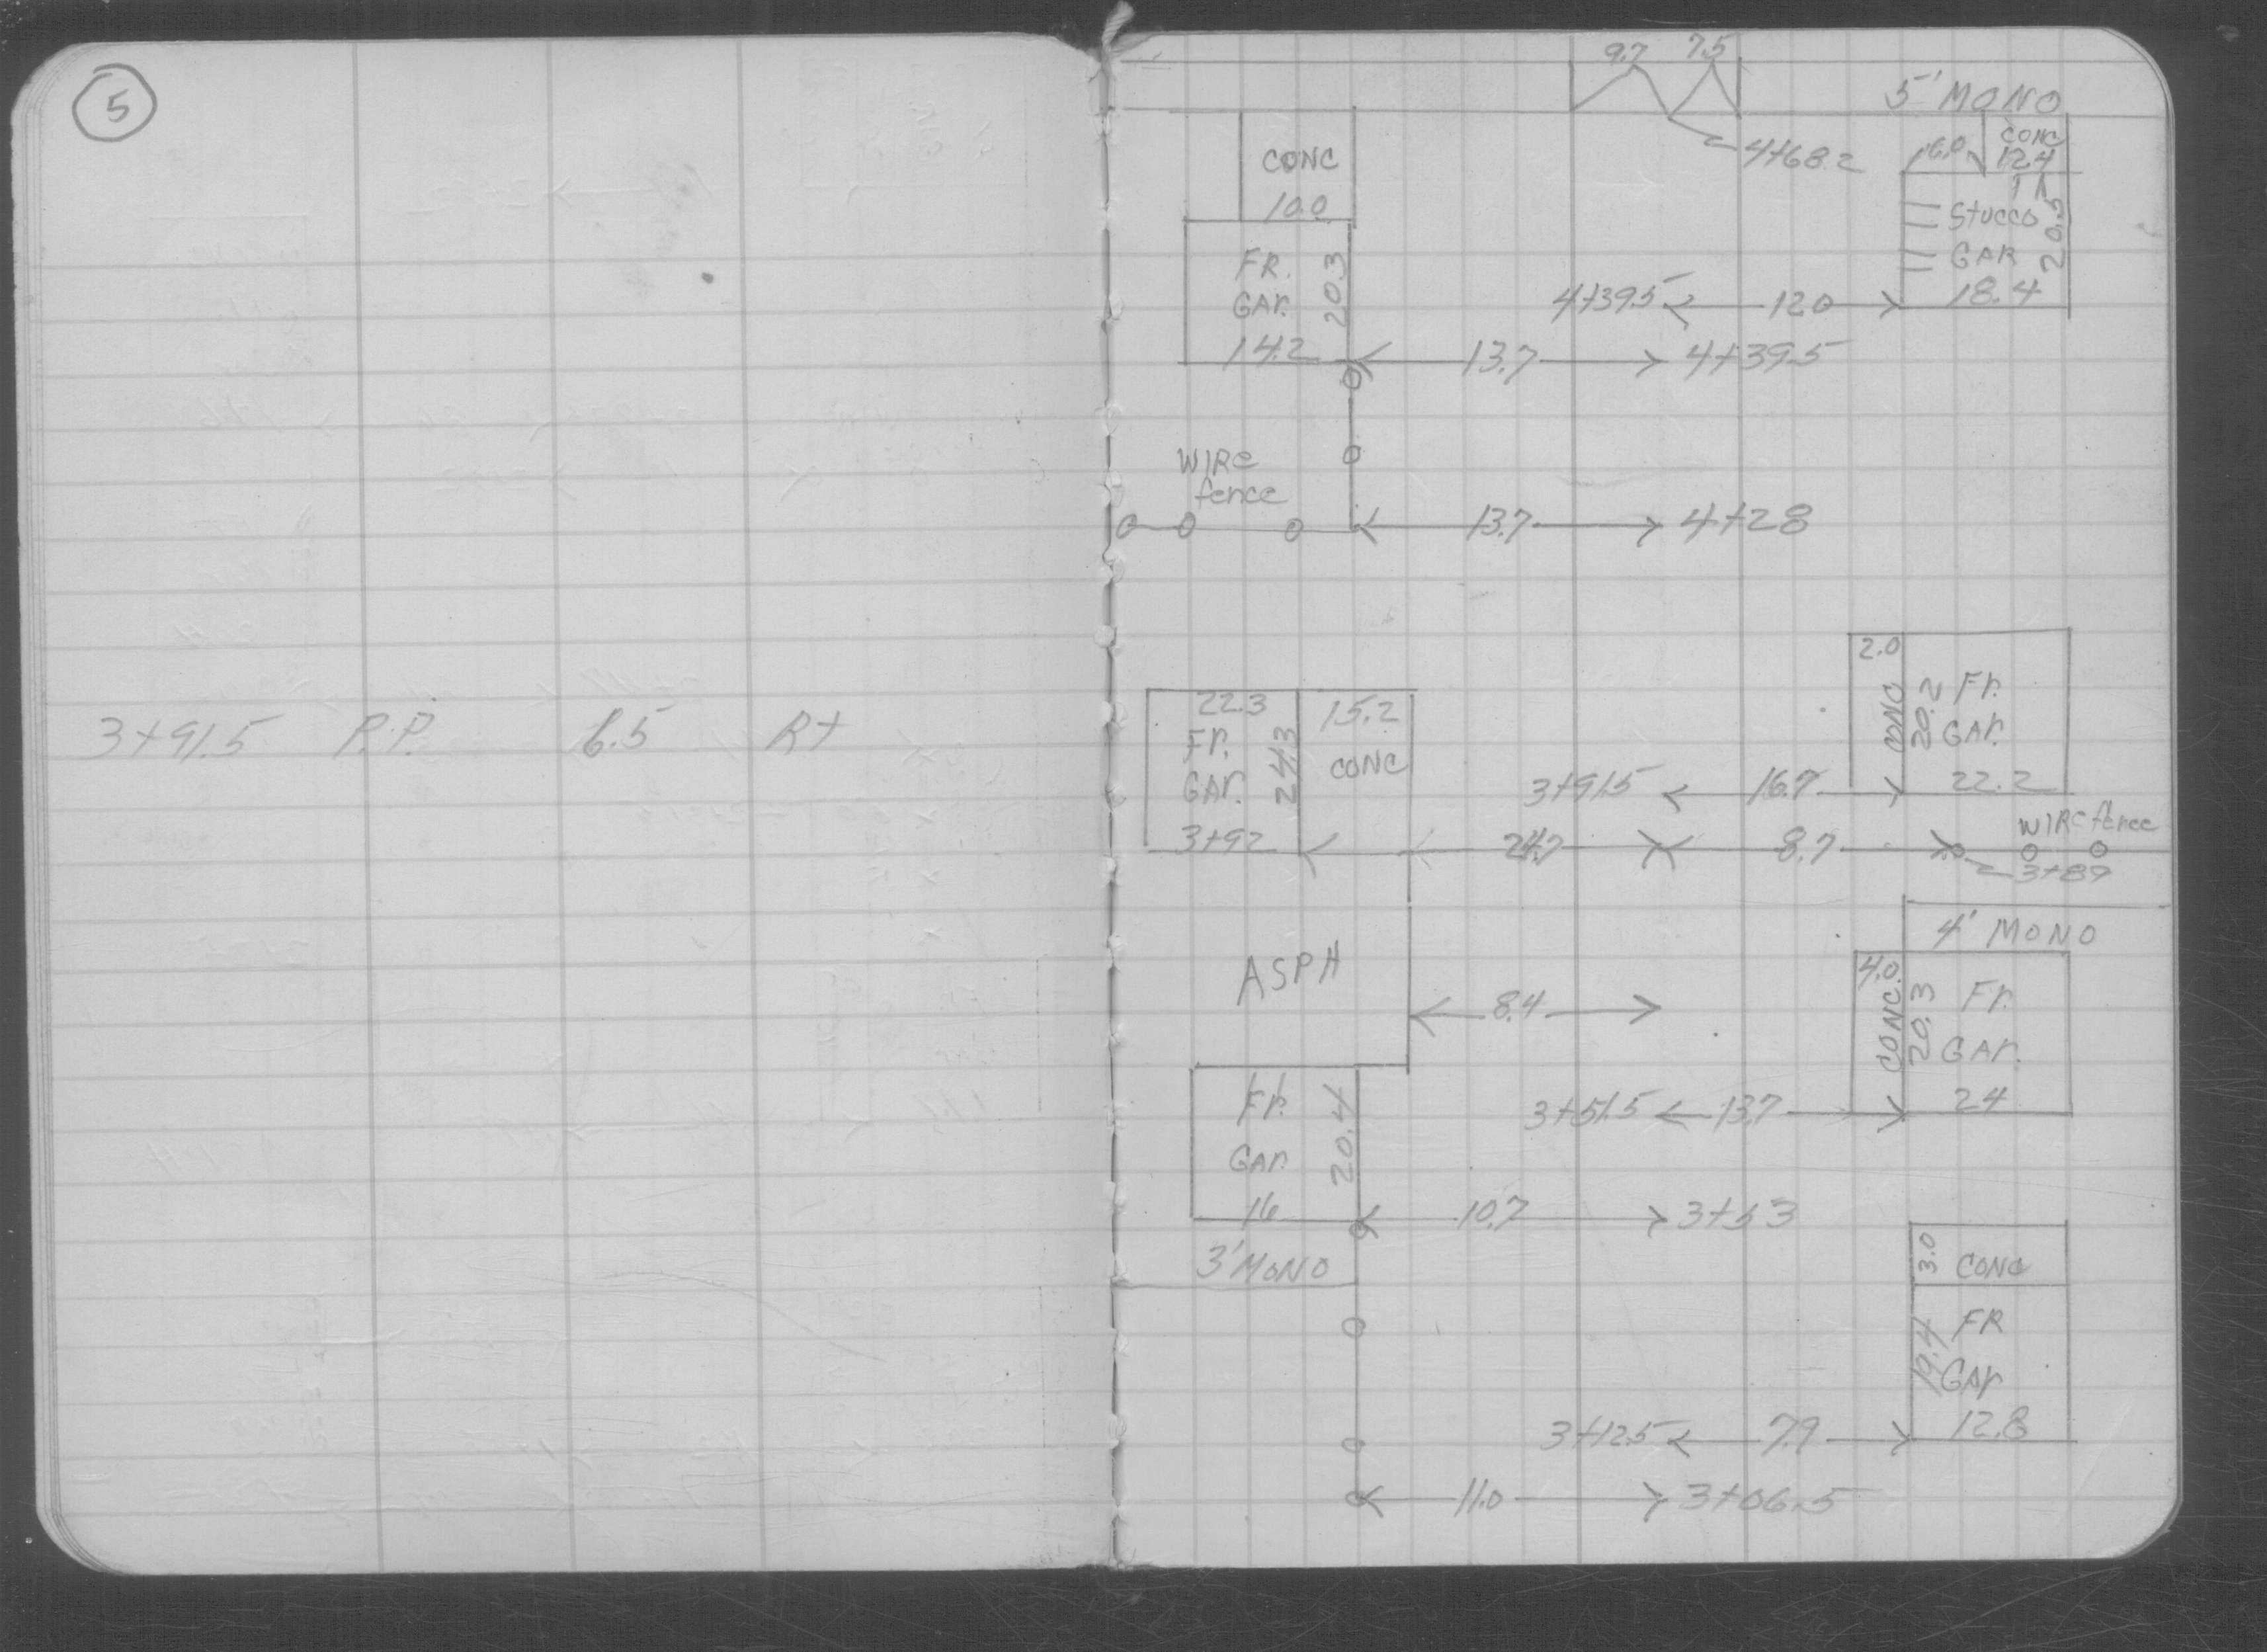 5
3+91.5 P.P. 6.5 Rt
9.7 7.5
5' MONO
CONC
10.0
4+68.2
6.0
CONC
12.4
FR.
GAr.
20.3
14.2
Stucco
GAR
20.5
18.4
4+39.5 12.0
13.7 4+39.5
WIRe
fence
13.7 4+28
2.0
CONC
20.2
Fr.
GAr.
22.2
22.3
Fr.
GAr.
24.3
3+92
15.2
CONC
3+91.5 16.7
24.7 8.7
WIRe fence
3+89
4' MONO
ASPH
8.4
4.0
CONC.
20.3
Fr.
GAr.
24
3+51.5 13.7
Fr.
GAr.
20.4
16
10.7 3+53
3' MONO
3.0
CONC
FR
GAr
19.4
12.8
3+12.5 7.9
11.0 3+06.5